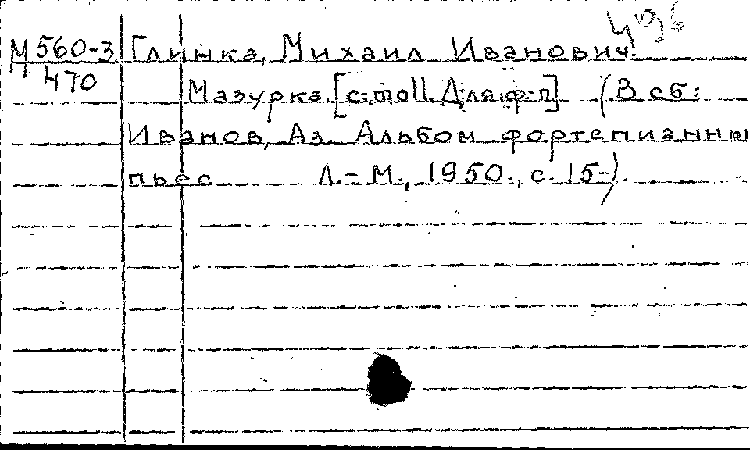 М 560-3 Глинка, Михаил Иванович.
470 Мазурка [c-moll. Для ф-п] (В сб:
Иванов, Аз. Альбом фортепианны
пьес Л.-М., 1950., с. 15-)